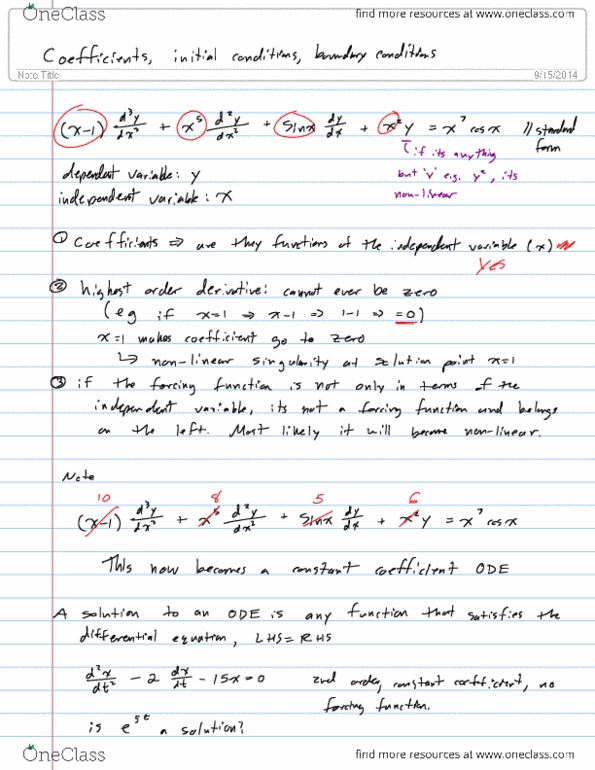 OneClass find more resources at www.oneclass.com
Coefficients, initial conditions, boundary conditions
Note Title 9/15/2014
(x-1) d³y/dx³ + x⁵ d²y/dx² + sinx dy/dx + x²y = x⁷ cosx // standard form
if its anything
dependent variable: y but 'y' e.g. y², its
independent variable: x non-linear
① Coefficients ⇒ are they functions of the independent variable (x)
Yes
② highest order derivative: cannot ever be zero
(eg if x=1 ⇒ x-1 ⇒ 1-1 ⇒ =0)
x=1 makes coefficient go to zero
↳ non-linear singularity at solution point x=1
③ if the forcing function is not only in terms of the
independent variable, its not a forcing function and belongs
on the left. Most likely it will become non-linear.
Note
10 8 5 6
(x-1) d³y/dx³ + x⁵ d²y/dx² + sinx dy/dx + x²y = x⁷ cosx
This now becomes a constant coefficient ODE
A solution to an ODE is any function that satisfies the
differential equation, LHS=RHS
d²x/dt² - 2 dx/dt - 15x=0 2nd order, constant coefficient, no
forcing function.
is e⁵ᵗ a solution?
OneClass find more resources at www.oneclass.com